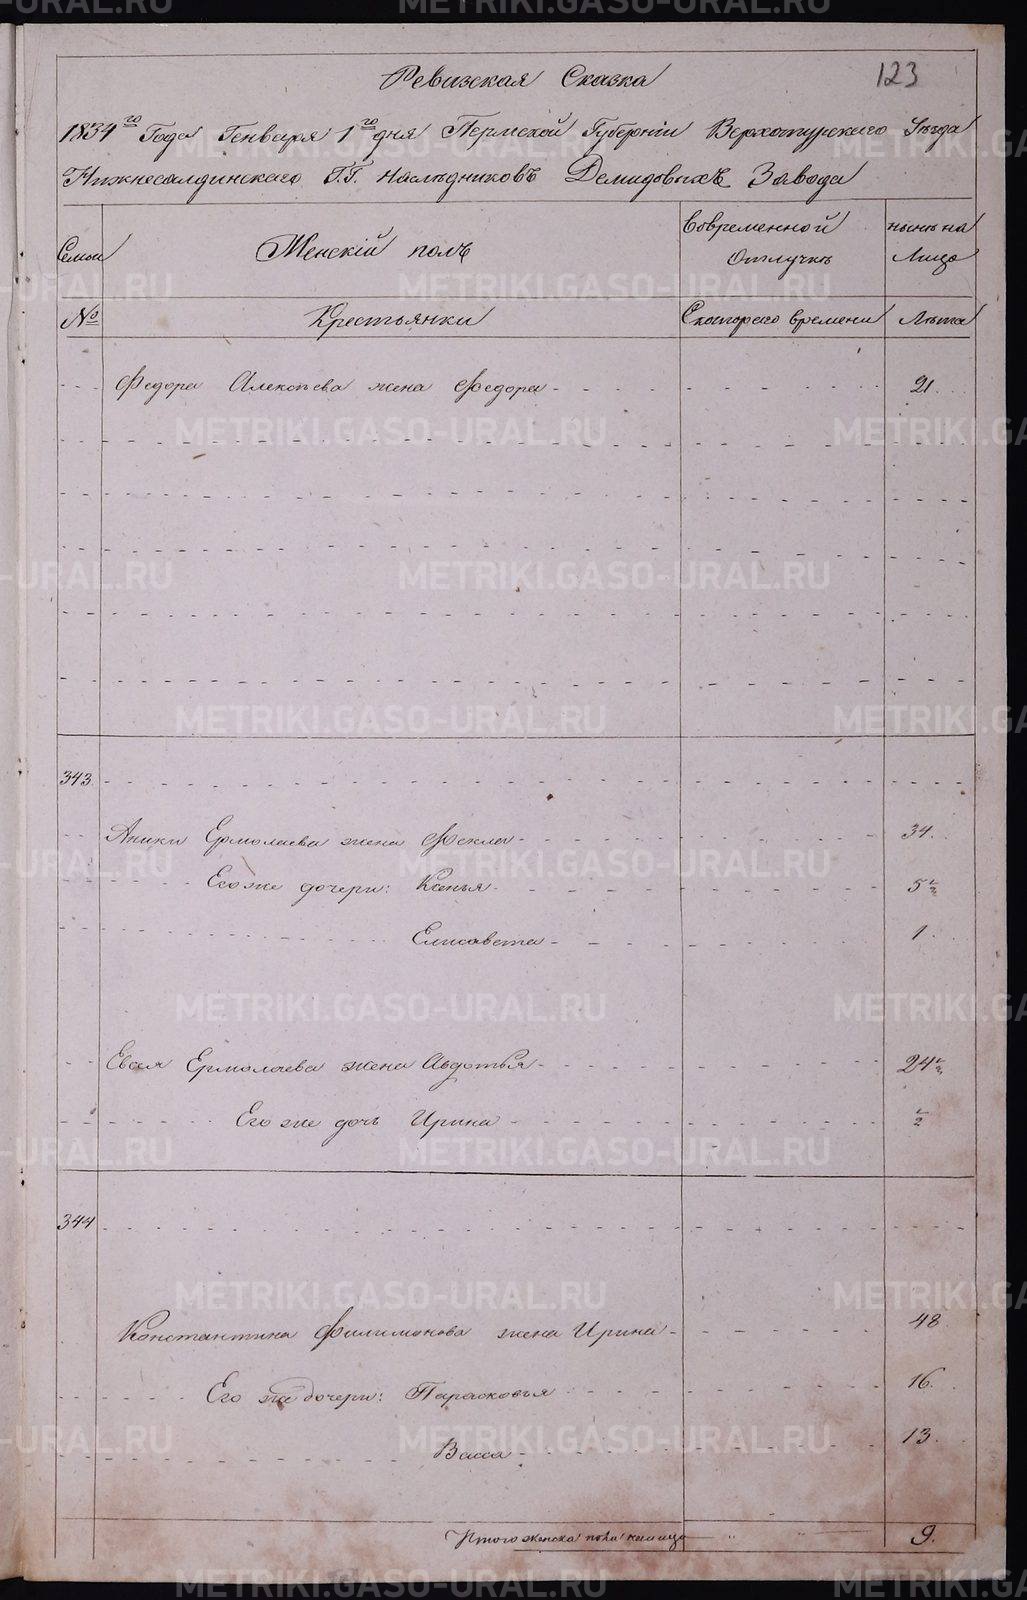 123
Ревизская Сказка
1834го Года Генваря 1го дня Пермской Губернiи Верхотурскаго Уѣзда
Нижнесалдинскаго Г.Г. Наслѣдниковъ Демидовыхъ Завода
Семьи
Женскiй полъ
Во временной отлучкѣ
нынѣ на лицо
№
Крестьянки
Съ котораго времени
Лѣта
Федора Алексѣева жена Федора 21
343
Аники Ермолаева жена Фекла 34
Его же дочери: Ксенья 5 1/2
Елисавета 1
Ермолаева жена Авдотья 24 1/2
Его же дочь Ирина 1/2
344
Константина Филимонова жена Ирина 48
Его же дочери: Парасковья 16
Васса 13
Итого женска пола на лицо 9.
METRIKI.GASO-URAL.RU